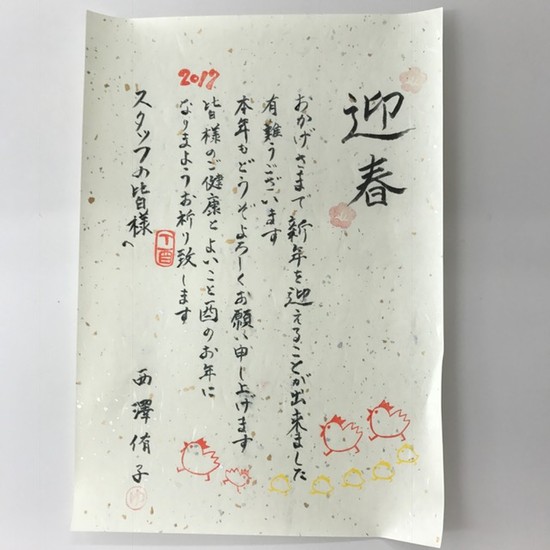 迎春
おかげさまで新年を迎えることが出来ました
有難うございます
本年もどうぞよろしくお願い申し上げます
2017
皆様のご健康とよいこと酉のお年に
なりまようお祈り致します
丁酉
スタッフの皆様へ
西澤侑子